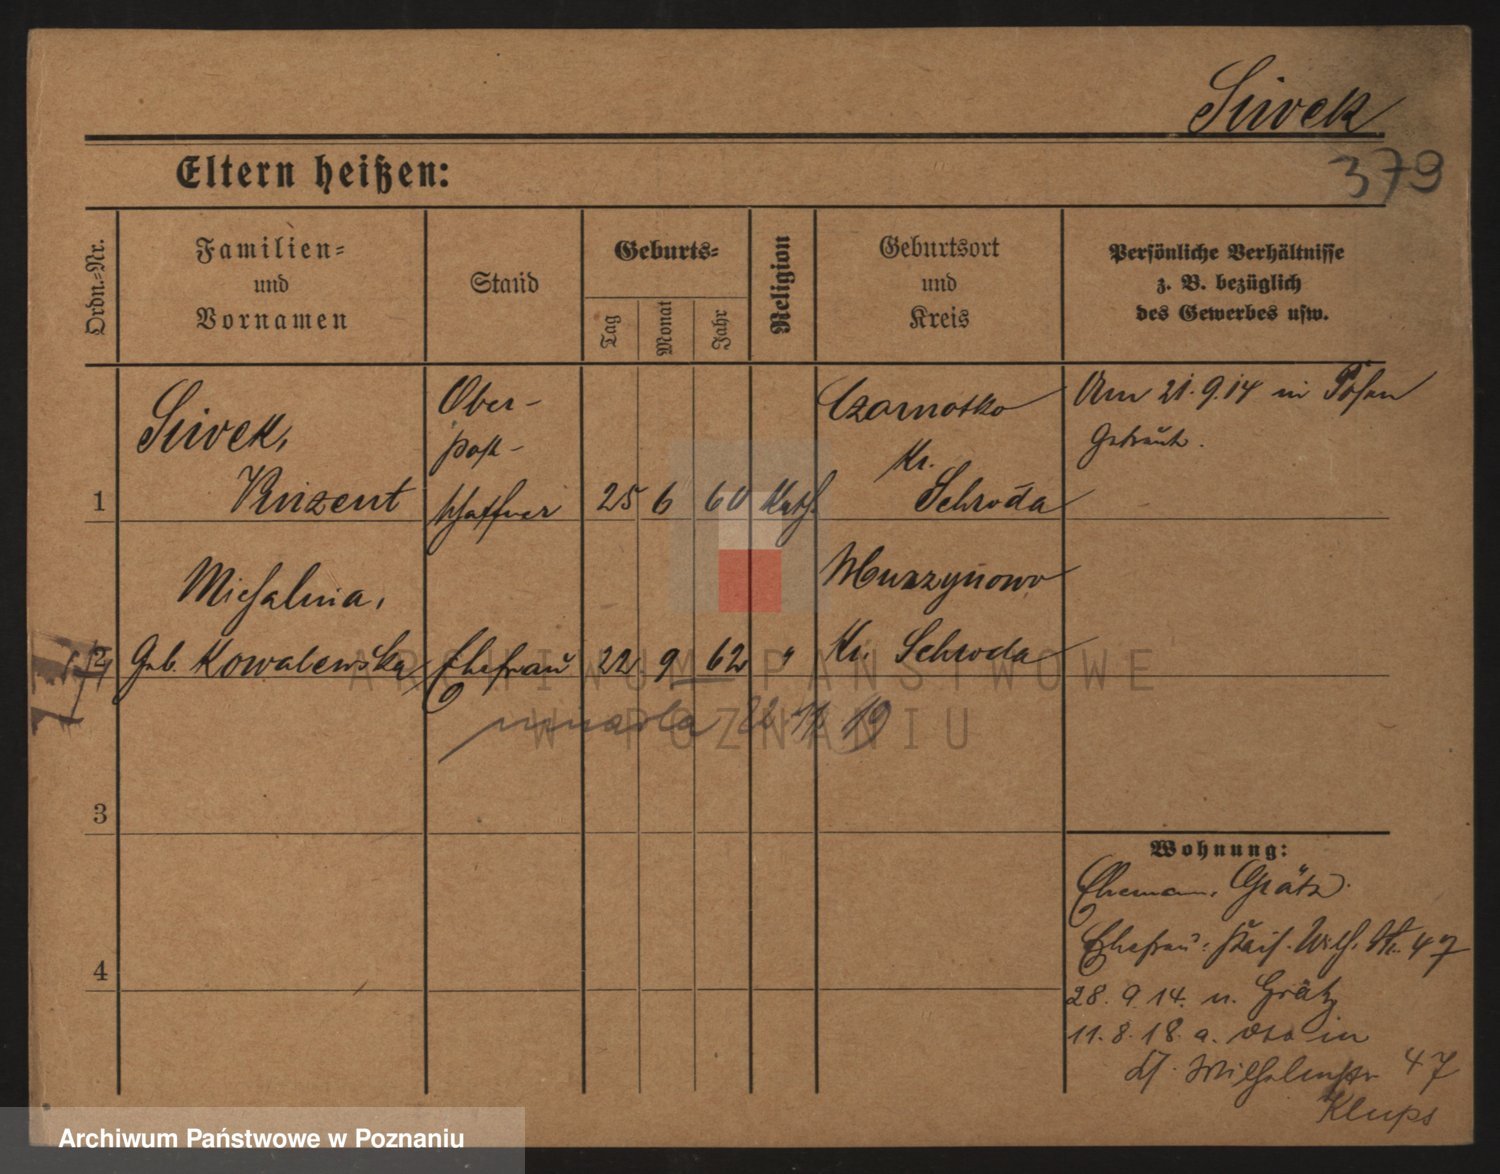 Siwek
379
Eltern heißen:
Ordn.-Nr.
Familien-
und
Vornamen
Stand
Geburts-
Tag
Monat
Jahr
Religion
Geburtsort
und
Kreis
Persönliche Verhältnisse
z. B. bezüglich
des Gewerbes usw.
1
Siwek,
Vinzent
Ober-
post-
schaffner
25 6 60 Kath.
Czarnotko
Kr.
Schroda
Am 21.9.14 in Posen
getraut.
2
Michalina,
Geb. Kowalewska
Ehefrau
22 9 62 "
Murzynowo
Kr. Schroda
umarła 22 11 19
3
4
Wohnung:
Ehemann: Grätz.
Ehefrau: Kais. Wilh. Str. 47
28. 9. 14. n. Grätz
11. 8. 18. a. dto in
Wilhelmstr 47
Klups
ARCHIWUM PAŃSTWOWE
W POZNANIU
Archiwum Państwowe w Poznaniu